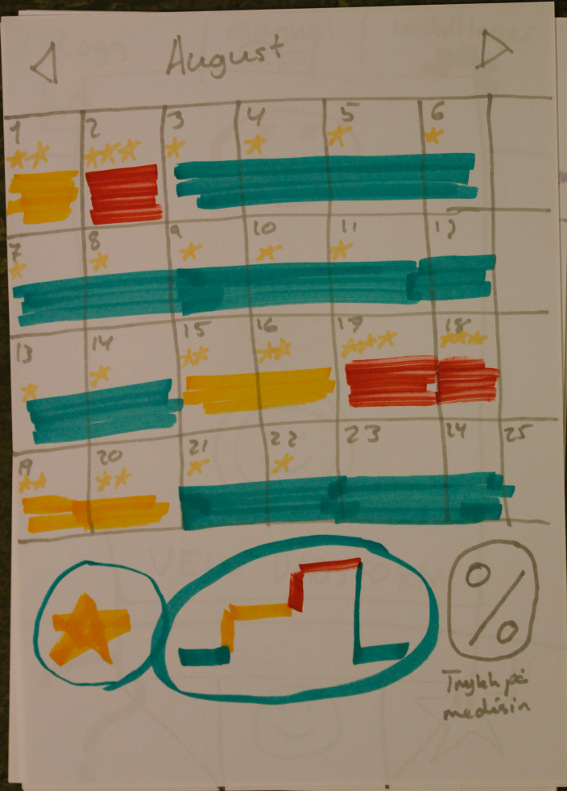 August
1 2 3 4 5 6
7 8 9 10 11 12
13 14 15 16 17 18
19 20 21 22 23 24 25
%
Trykk på
medisin